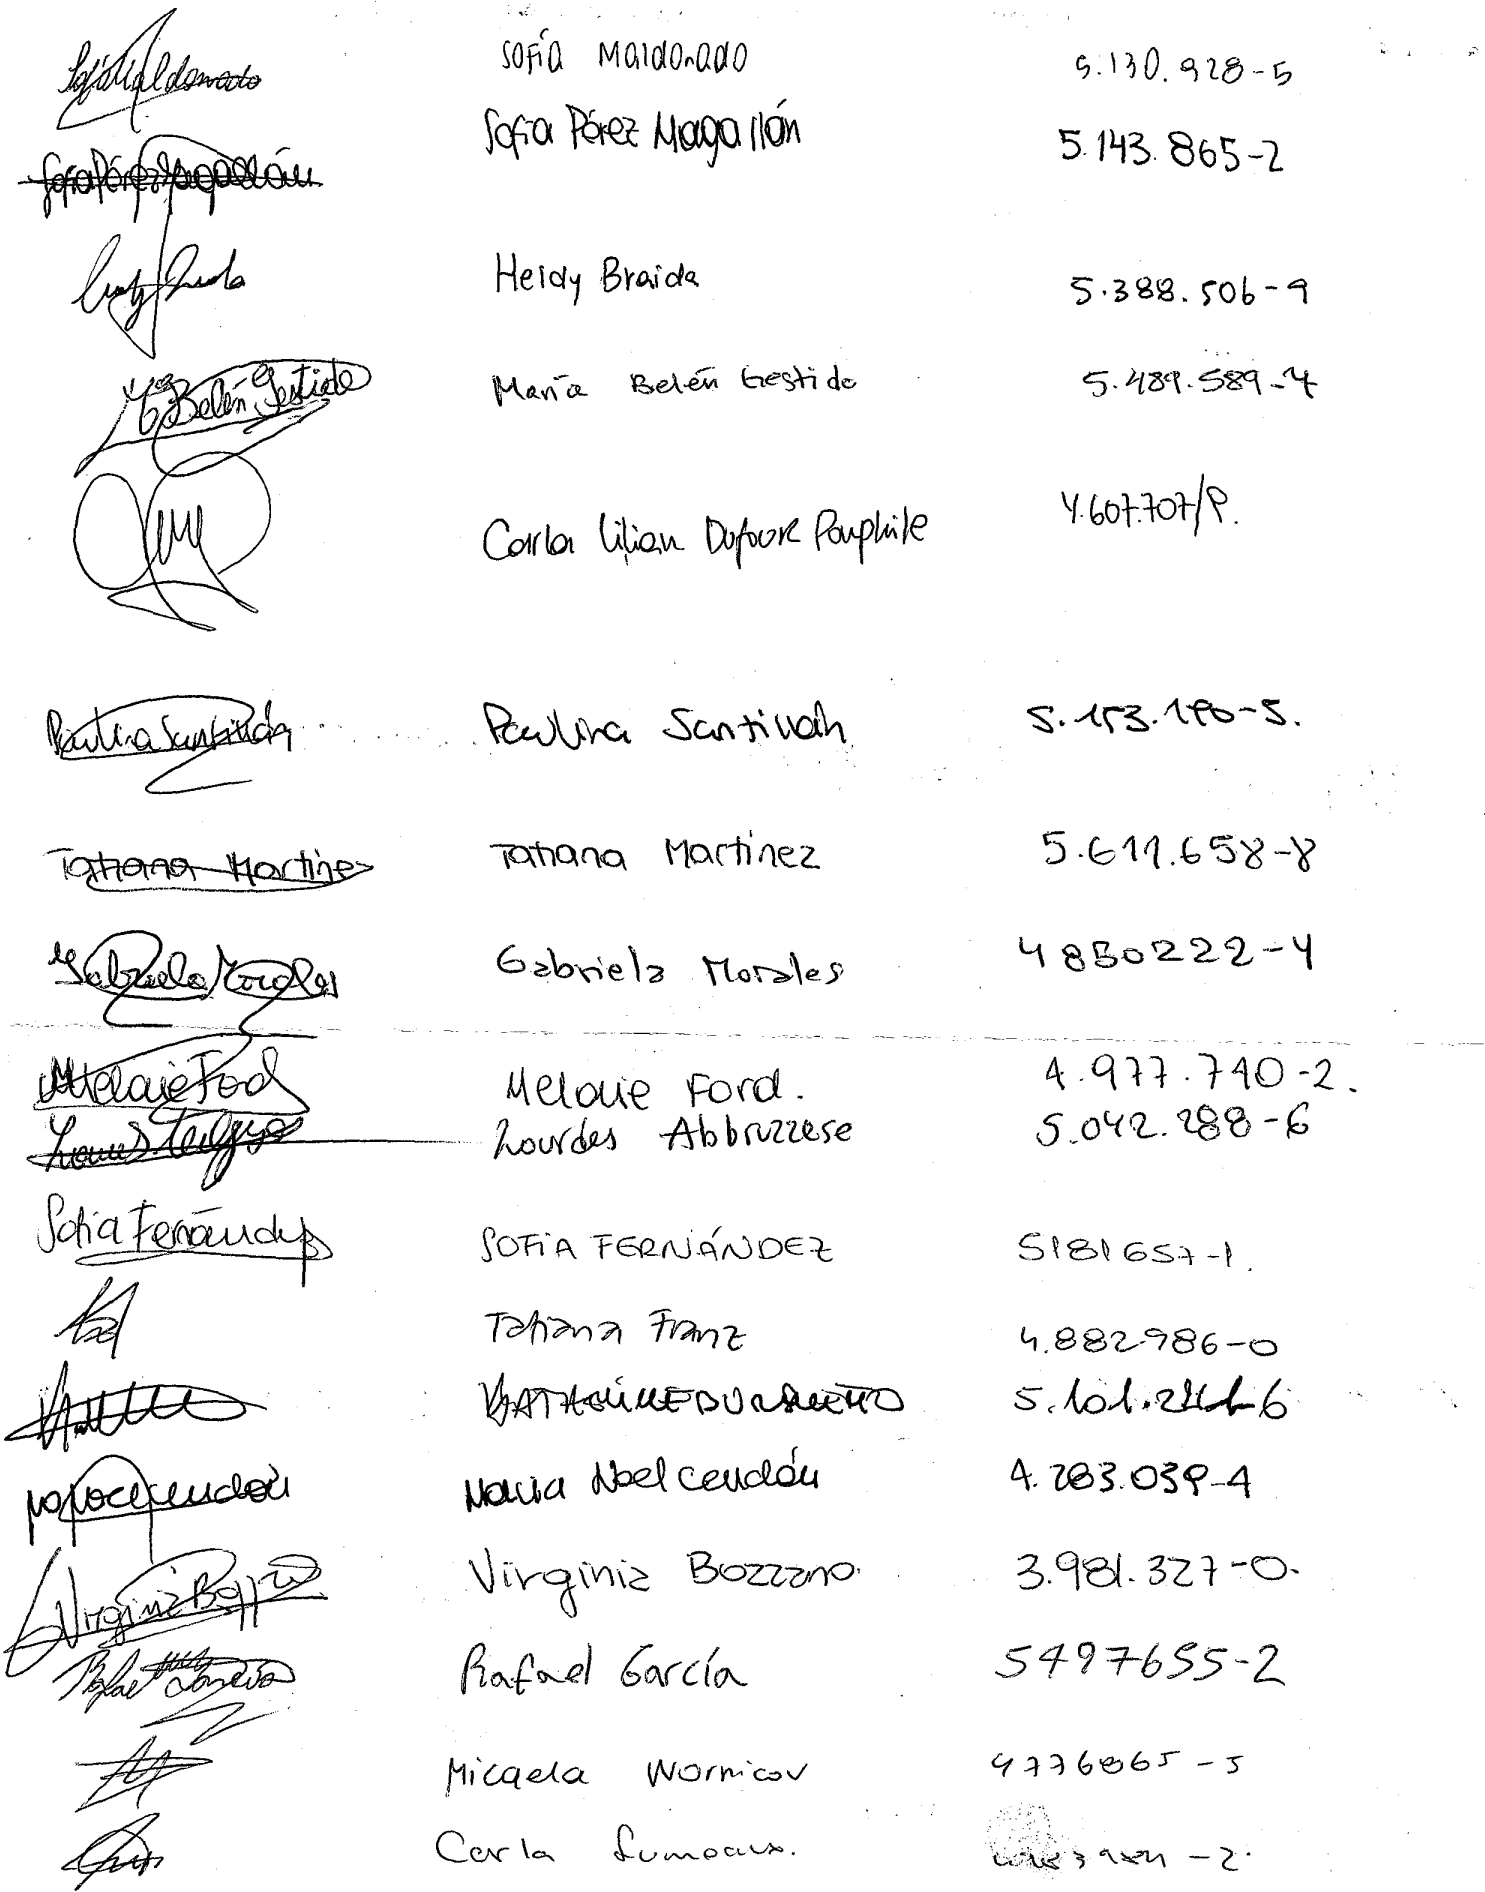 Sofía Maldonado 5.130.928-5
Sofia Pérez Magallón 5.143.865-2
Heidy Braida 5.388.506-9
M Belén Gestido María Belén Gestido 5.489.589-4
Carla Lilian Dufour Pouphile 4.607.707/8.
Paulina Santiván Paulina Santiván 5.153.190-5.
Tatiana Martínez Tatiana Martínez 5.611.658-8
Gabriela Morales Gabriela Morales 4850222-4
Melanie Ford Melanie Ford. 4.977.740-2.
Lourdes Abbruzzese 5.042.288-6
Sofia Fernández SOFÍA FERNÁNDEZ 5181657-1.
Tatiana Franz 4.882.986-0
5.101.
María Noel Cendón 4.283.039-4
Virginia Bozzano Virginia Bozzano. 3.981.327-0.
Rafael García Rafael García 5497655-2
Micaela Wornicov 4776865-5
Carla -2.